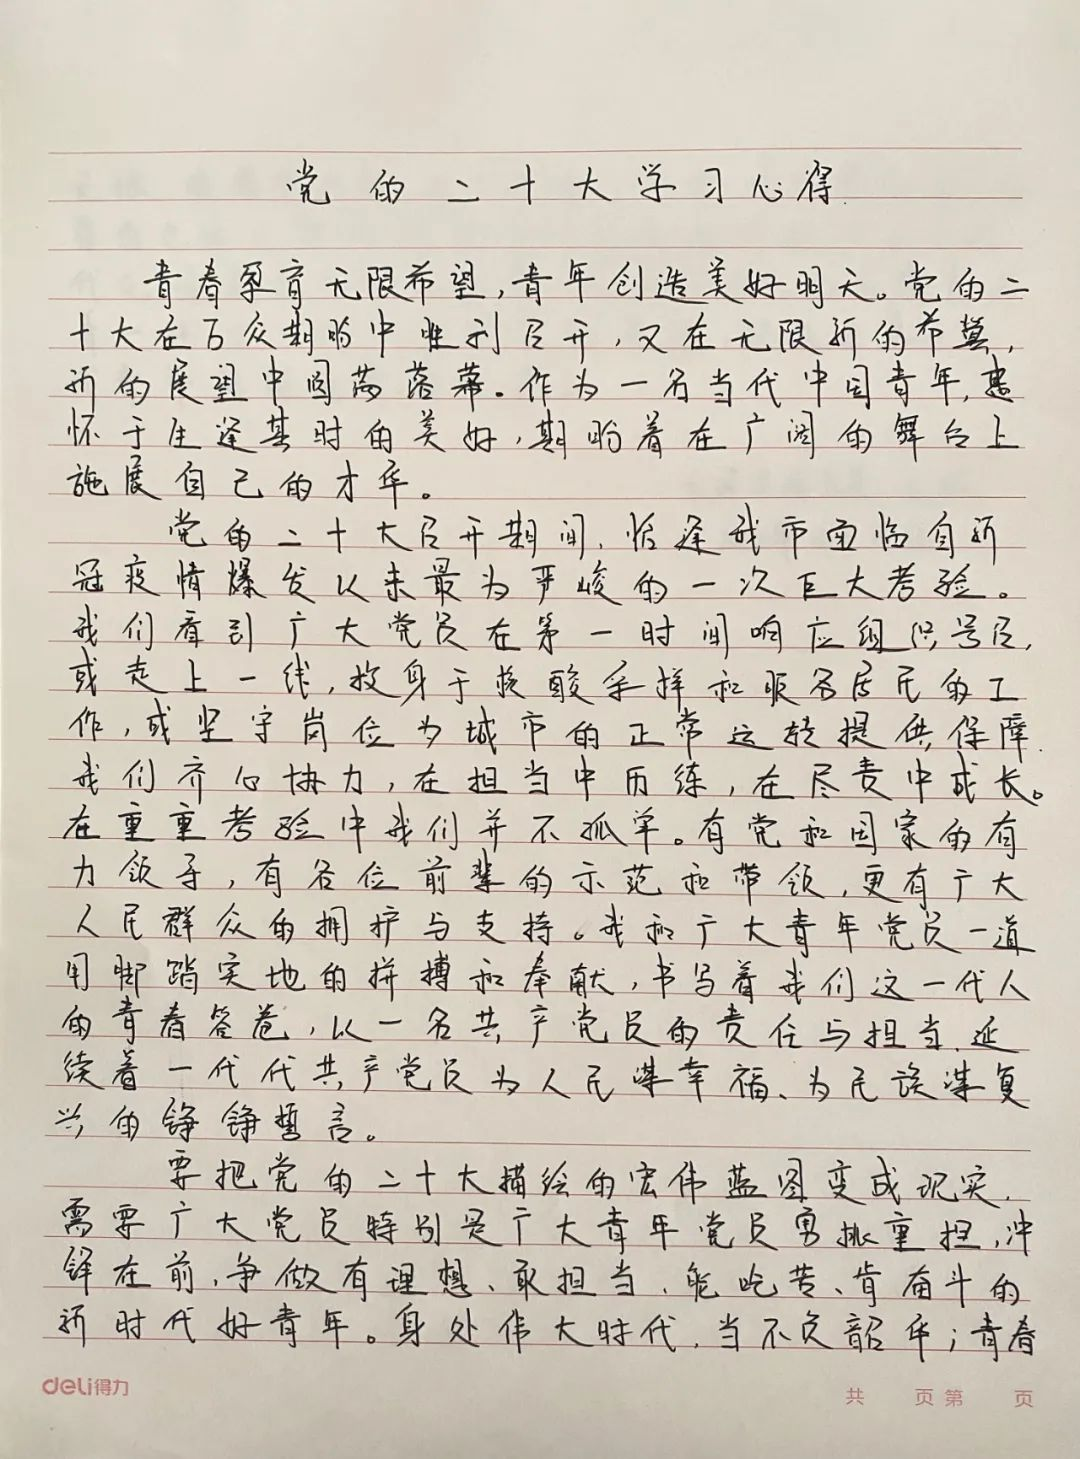 党的二十大学习心得
青春孕育无限希望,青年创造美好明天。党的二
十大在万众期盼中胜利召开,又在无限新的希冀,
新的展望中圆满落幕。作为一名当代中国青年,感
怀于生逢其时的美好,期盼着在广阔的舞台上
施展自己的才华。
党的二十大召开期间,恰逢我市面临自新
冠疫情爆发以来最为严峻的一次巨大考验。
我们看到广大党员在第一时间响应组织号召,
或走上一线,投身于核酸采样和服务居民的工
作,或坚守岗位为城市的正常运转提供保障.
我们齐心协力,在担当中历练,在尽责中成长。
在重重考验中我们并不孤单。有党和国家的有
力领导,有各位前辈的示范和带领,更有广大
人民群众的拥护与支持。我和广大青年党员一道
用脚踏实地的拼搏和奉献,书写着我们这一代人
的青春答卷,以一名共产党员的责任与担当,延
续着一代代共产党员为人民谋幸福、为民族谋复
兴的铮铮誓言。
要把党的二十大描绘的宏伟蓝图变成现实,
需要广大党员特别是广大青年党员勇挑重担,冲
锋在前,争做有理想、敢担当、能吃苦、肯奋斗的
新时代好青年。身处伟大时代,当不负韶华;青春
deli得力
共 页 第 页